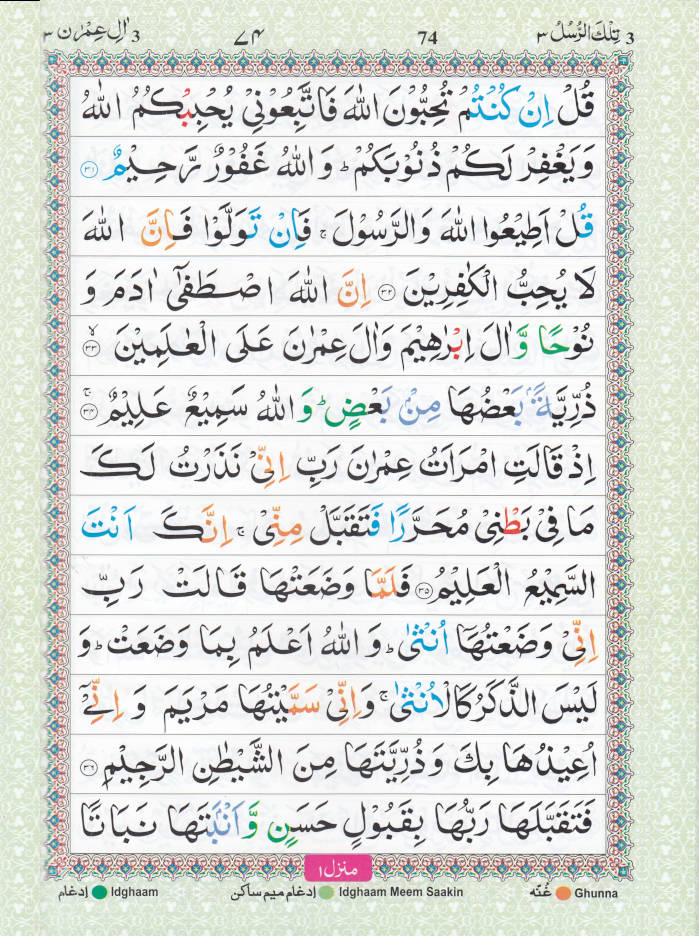 3 تِلْكَ الرُّسُلُ ٣ 74 ٧٤ 3 اٰلِ عِمْرٰن ٣
قُلْ اِنْ كُنْتُمْ تُحِبُّوْنَ اللّٰهَ فَاتَّبِعُوْنِيْ يُحْبِبْكُمُ اللّٰهُ
وَيَغْفِرْ لَكُمْ ذُنُوْبَكُمْ ؕ وَاللّٰهُ غَفُوْرٌ رَّحِيْمٌ ۝٣١
قُلْ اَطِيْعُوا اللّٰهَ وَالرَّسُوْلَ ۚ فَاِنْ تَوَلَّوْا فَاِنَّ اللّٰهَ
لَا يُحِبُّ الْكٰفِرِيْنَ ۝٣٢ اِنَّ اللّٰهَ اصْطَفٰۤى اٰدَمَ وَ
نُوْحًا وَّاٰلَ اِبْرٰهِيْمَ وَاٰلَ عِمْرٰنَ عَلَى الْعٰلَمِيْنَ ۙ۝٣٣
ذُرِّيَّةًۢ بَعْضُهَا مِنْۢ بَعْضٍ ؕ وَاللّٰهُ سَمِيْعٌ عَلِيْمٌ ۚ۝٣٤
اِذْ قَالَتِ امْرَاَتُ عِمْرٰنَ رَبِّ اِنِّيْ نَذَرْتُ لَكَ
مَا فِيْ بَطْنِيْ مُحَرَّرًا فَتَقَبَّلْ مِنِّيْ ۚ اِنَّكَ اَنْتَ
السَّمِيْعُ الْعَلِيْمُ ۝٣٥ فَلَمَّا وَضَعَتْهَا قَالَتْ رَبِّ
اِنِّيْ وَضَعْتُهَاۤ اُنْثٰى ؕ وَاللّٰهُ اَعْلَمُ بِمَا وَضَعَتْ ؕ وَ
لَيْسَ الذَّكَرُ كَالْاُنْثٰى ۚ وَاِنِّيْ سَمَّيْتُهَا مَرْيَمَ وَ اِنِّيْۤ
اُعِيْذُهَا بِكَ وَذُرِّيَّتَهَا مِنَ الشَّيْطٰنِ الرَّجِيْمِ ۝٣٦
فَتَقَبَّلَهَا رَبُّهَا بِقَبُوْلٍ حَسَنٍ وَّاَنْۢبَتَهَا نَبَاتًا
منزل ١
Ghunna غُنّه Idghaam Meem Saakin إدغام ميم ساكن Idghaam إدغام